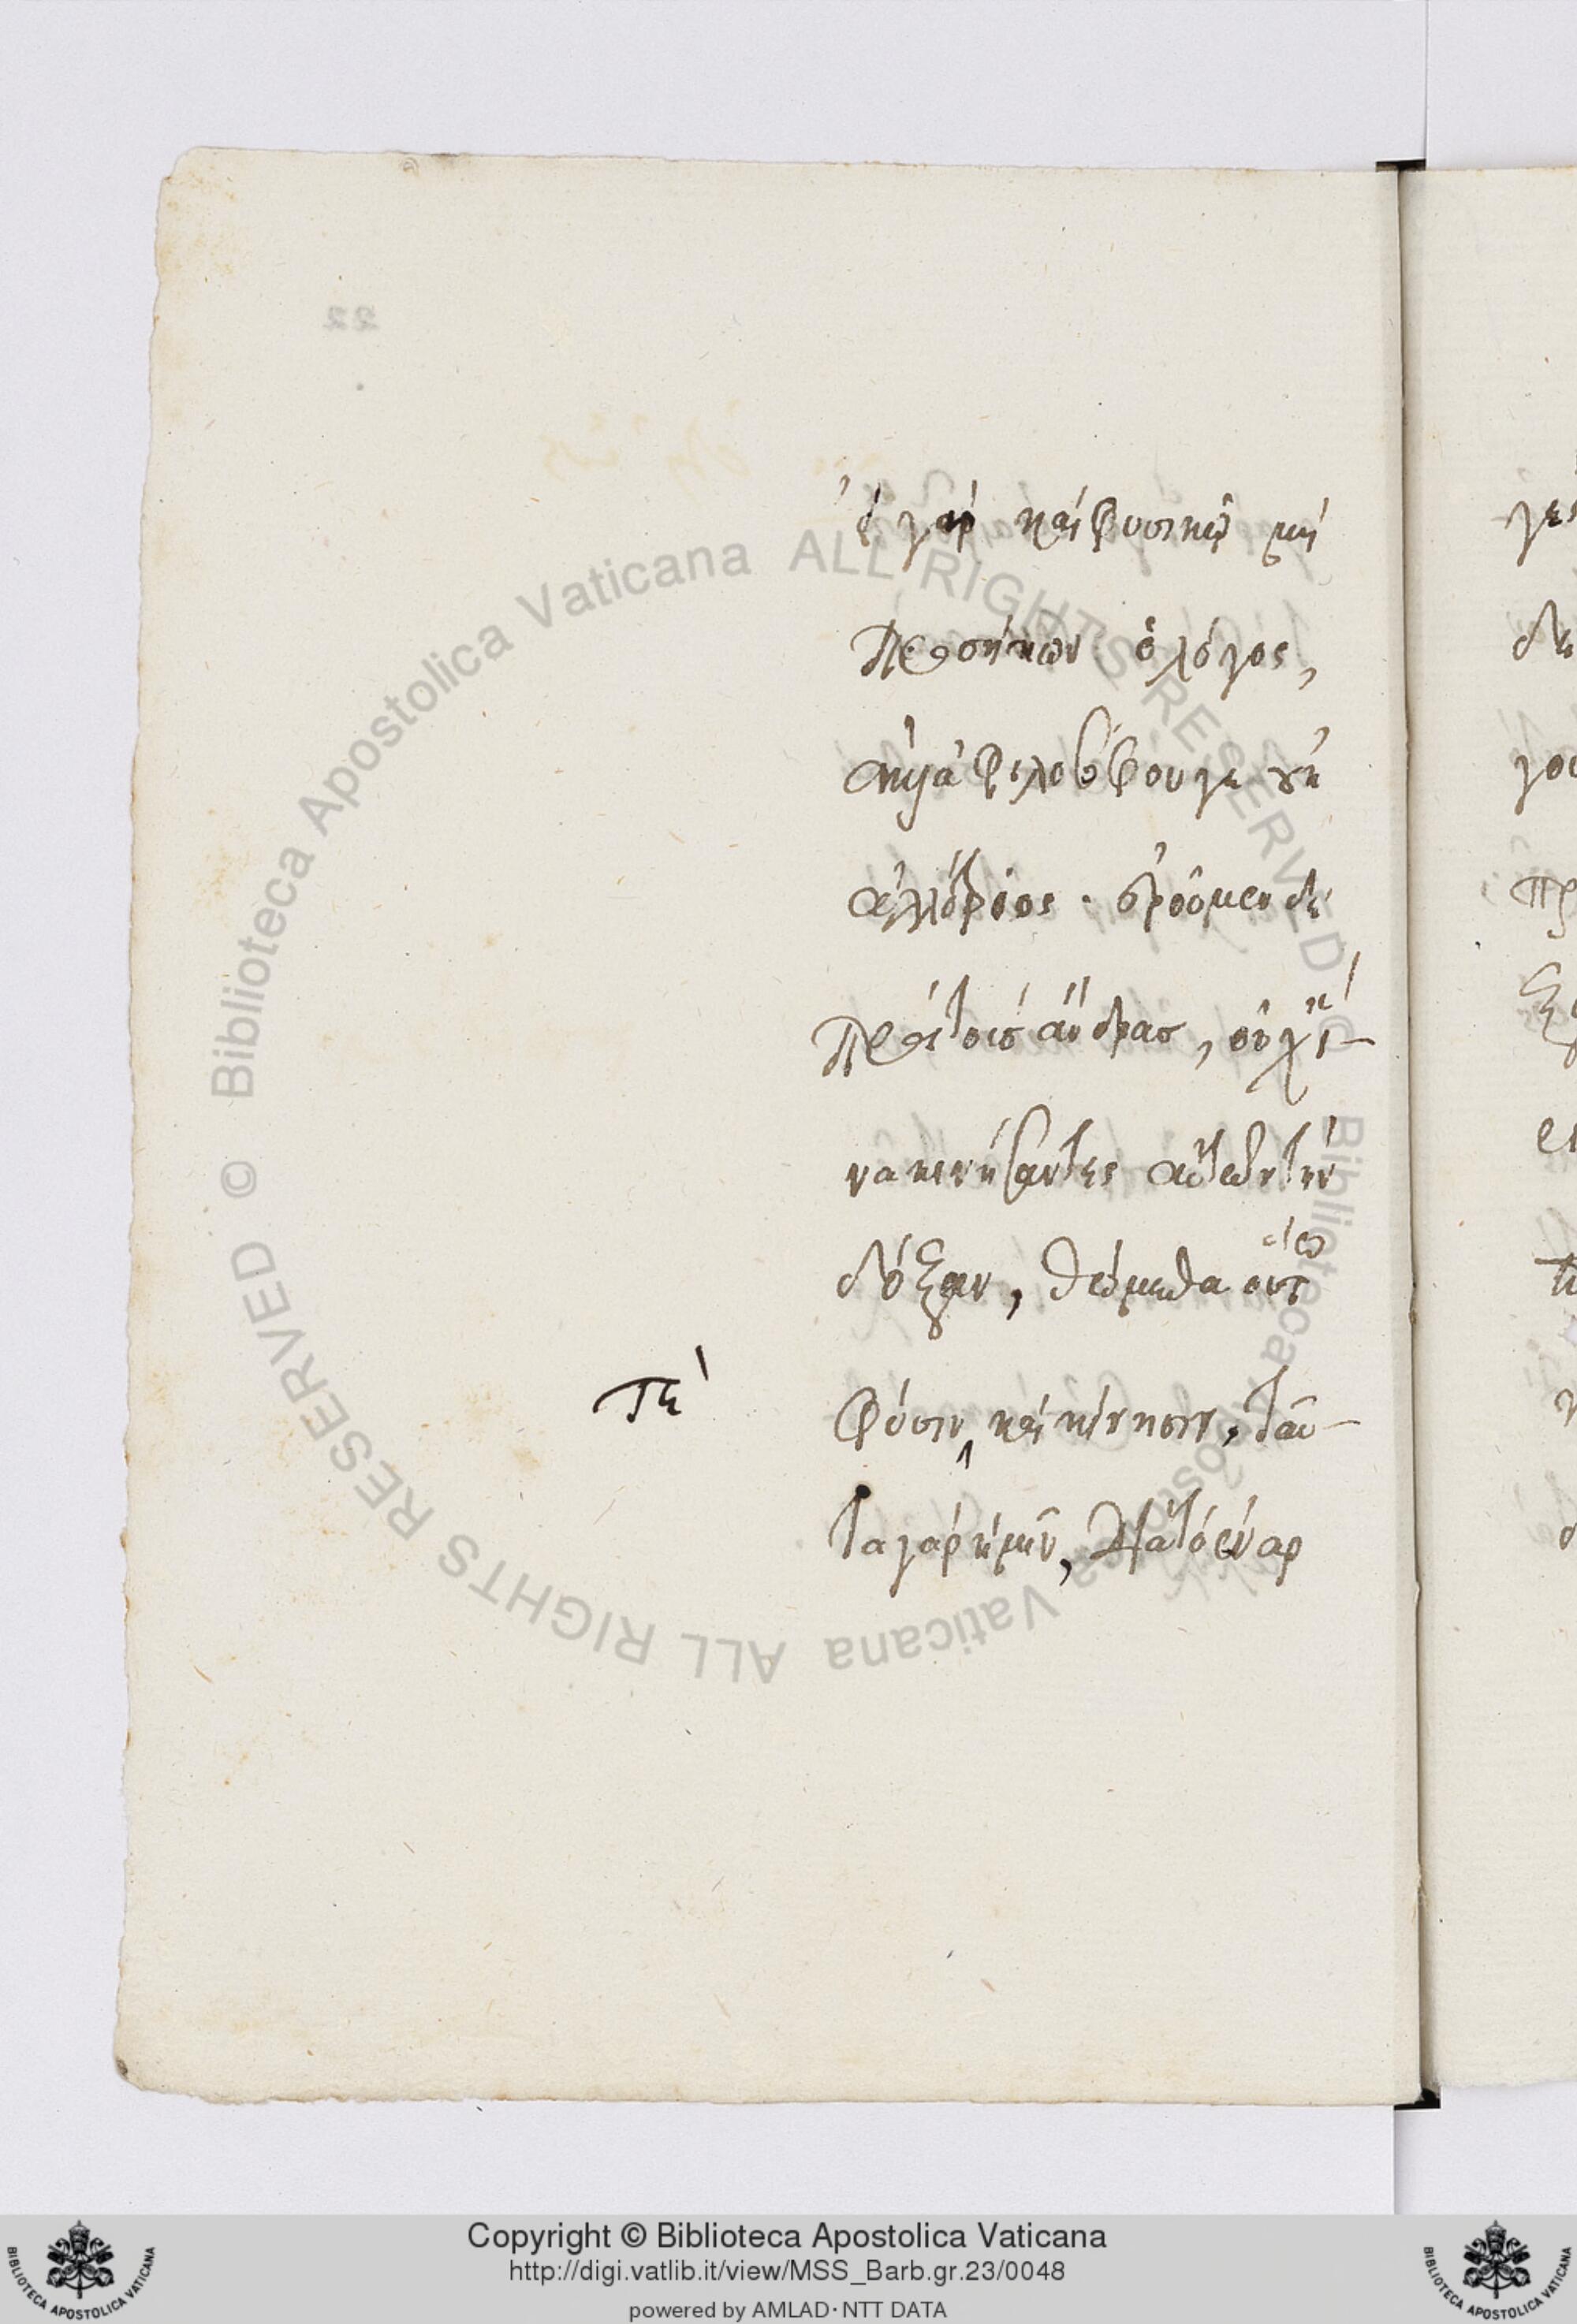 22
εἰ γὰρ καὶ φυσικῷ μὴ
προσήκων ὁ λόγος,
ἀλλὰ φιλοσόφου γε οὐκ
ἀλλότριος. ἐροῦμεν δὲ
πρὸς τοὺς ἄνδρας, οὐχ ἵ-
να κινήσαντες αὐτῶν τὴν
δόξαν, θώμεθα οὕτω
τε
φύσιν καὶ κίνησιν, ταῦ-
τα γὰρ ἡμῖν, κατὰ τὸ ἐναρ
© Biblioteca Apostolica Vaticana ALL RIGHTS RESERVED © Biblioteca Apostolica Vaticana ALL RIGHTS RESERVED
BIBLIOTECA APOSTOLICA VATICANA
Copyright © Biblioteca Apostolica Vaticana
http://digi.vatlib.it/view/MSS_Barb.gr.23/0048
powered by AMLAD·NTT DATA
BIBLIOTECA APOSTOLICA VATICANA